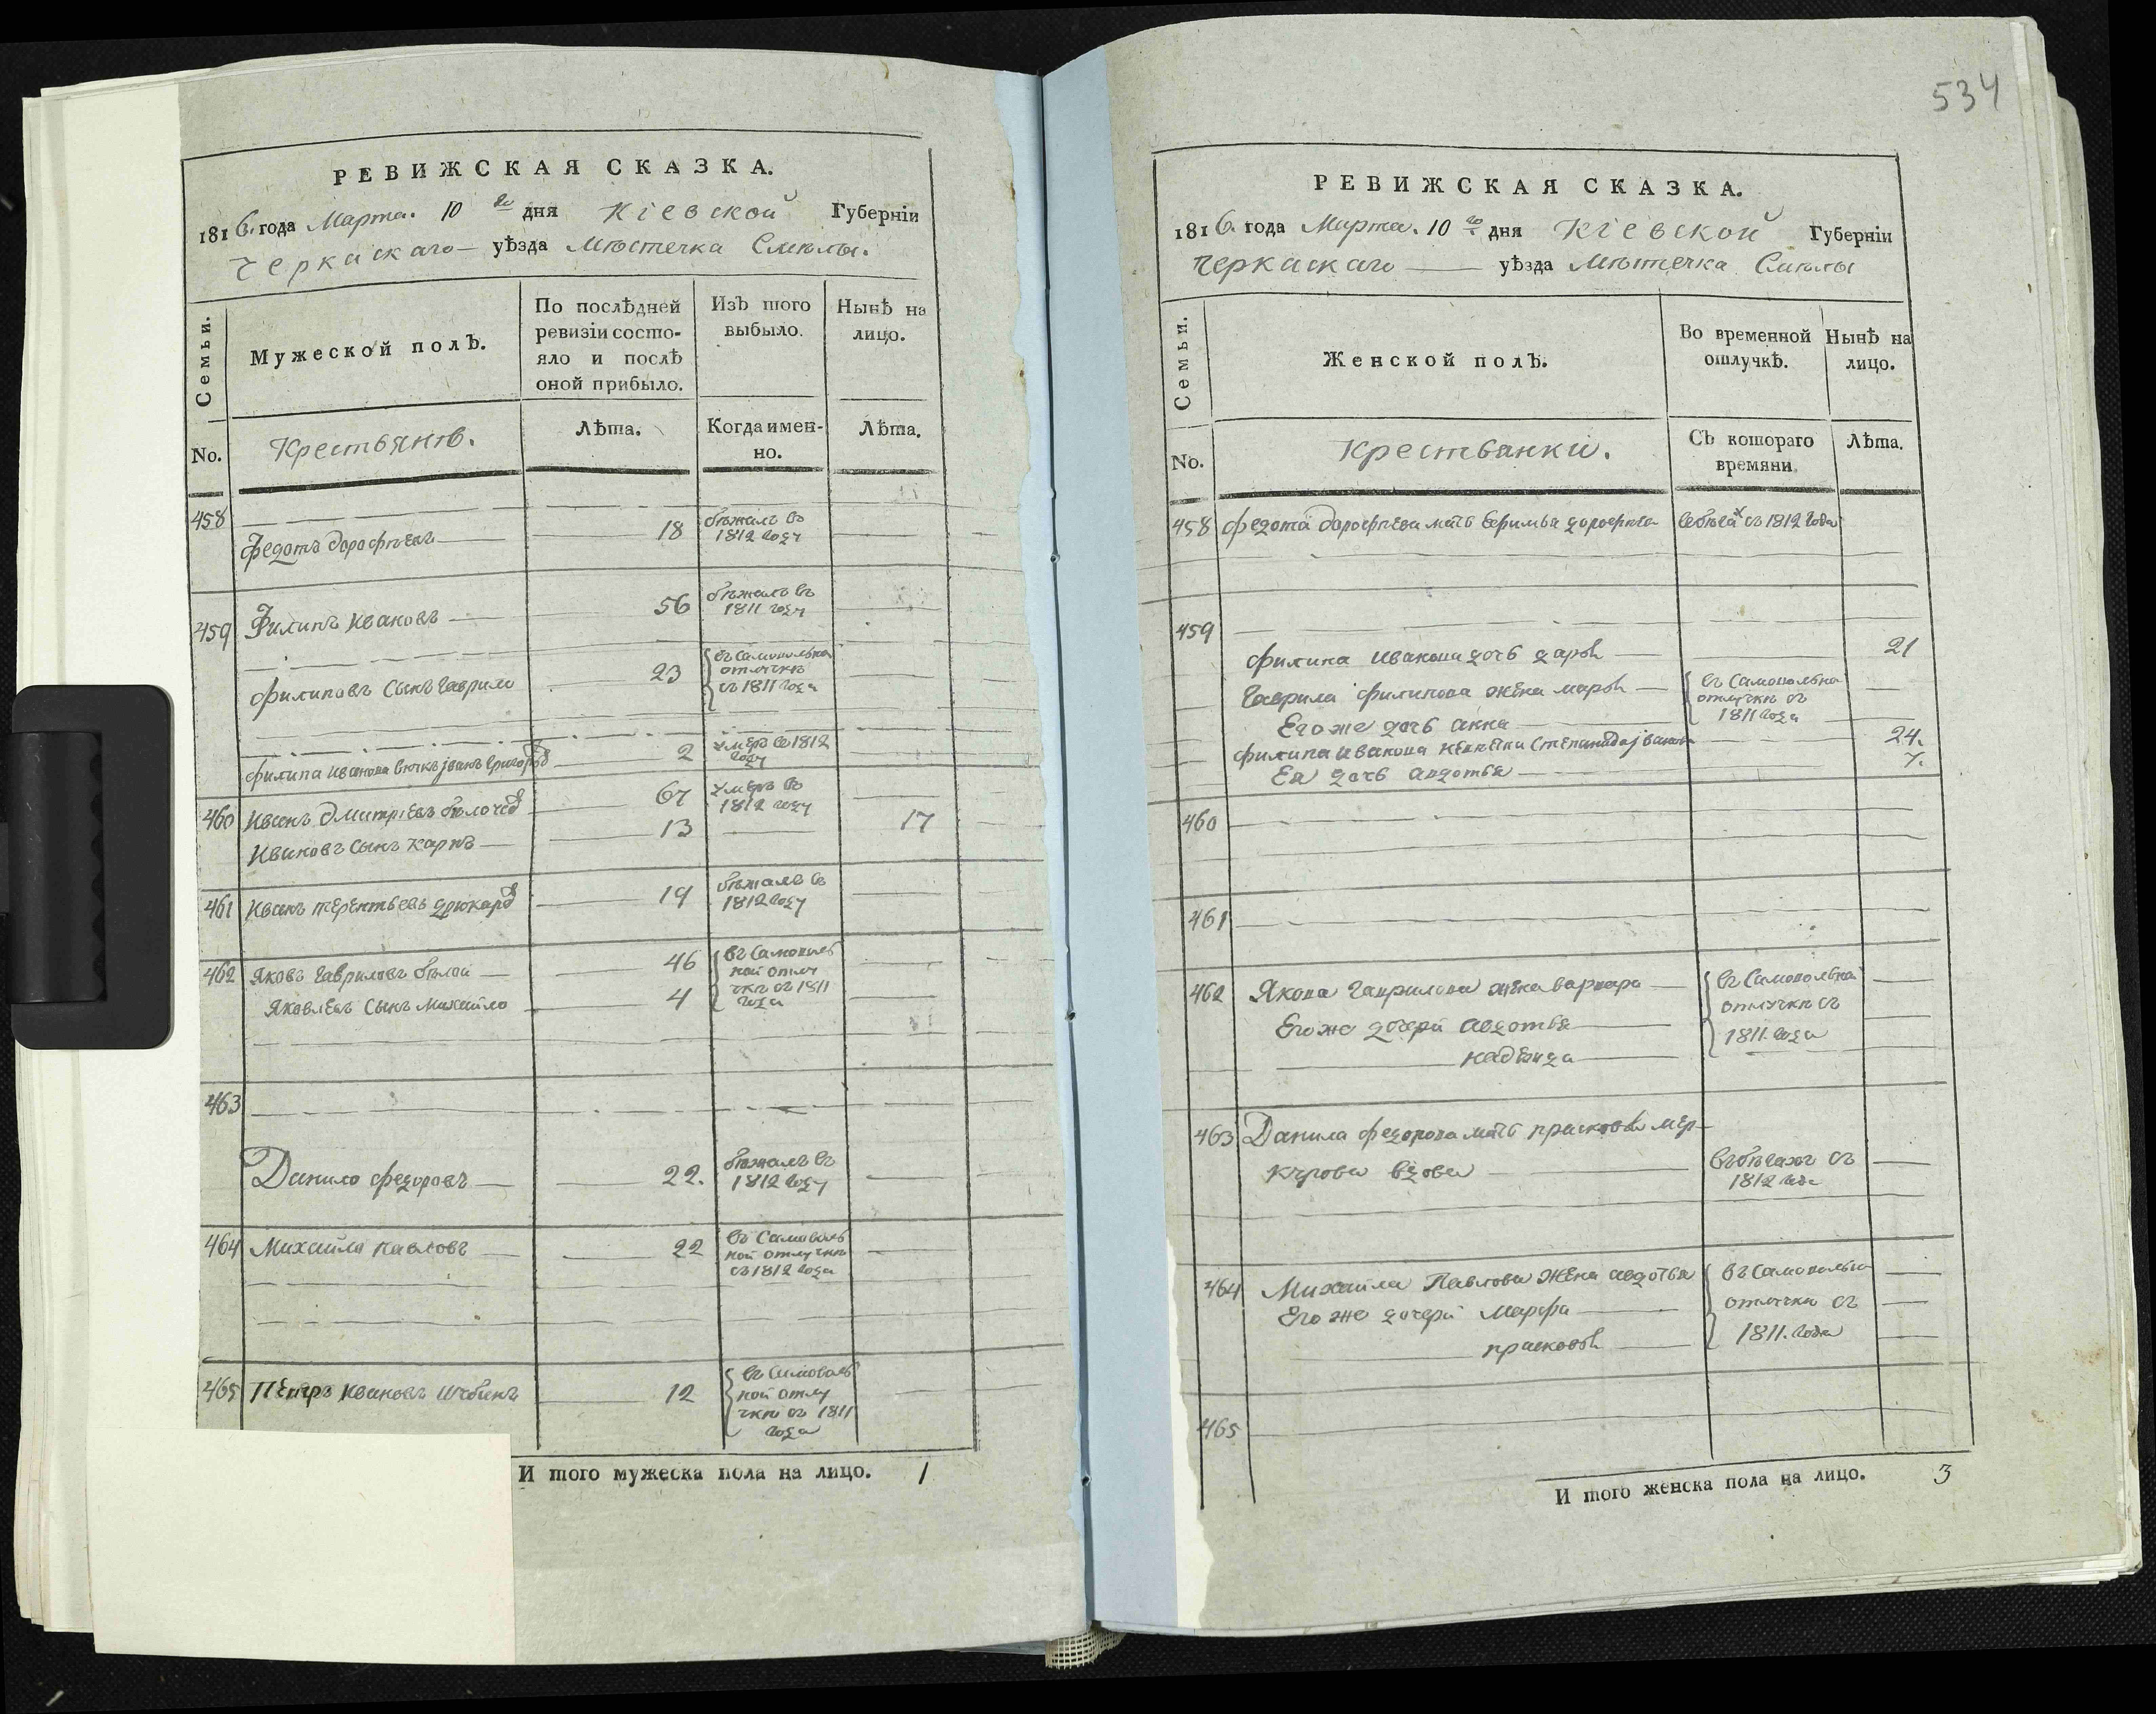 РЕВИЖСКАЯ СКАЗКА.
1816. года Марта. 10 го дня Кіевской Губерніи
Черкаскаго уѣзда Мѣстечка Смѣлы.
Семьи.
Мужеской полЪ.
По послѣдней ревизіи состо-
яло и послѣ оной прибыло.
ИзЪ того выбыло.
Нынѣ на лицо.
No.
Крестьянъ.
Лѣта.
Когда имен-
но.
Лѣта.
458
Федотъ дорофѣевъ 18 бѣжалъ въ
1812 году
459 Филипъ Ивановъ 56 бѣжалъ въ
1811 году
филиповъ Сынъ Гаврило 23 въ Самовольной
отлучкѣ
съ 1811 года
филипа Иванова внукъ іванъ 2 умеръ въ 1812
году
460 Иванъ Дмитріевъ 67 умеръ въ
1812 году
Ивановъ Сынъ Карпъ 13 17
461 Иванъ терентьевъ 19 бѣжалъ въ
1812 году
462 Яковъ Гавриловъ бѣлой 46 въ Самоволь
ной отлу
чкѣ съ 1811
года
Яковлевъ Сынъ Михайло 4
463
Данило федоровъ 22. бѣжалъ въ
1812 году
464 Михайла Павловъ 22 въ Самоволь
ной отлучкѣ
съ 1812 года
465 Петръ Ивановъ 12 въ Самоволь
ной отлу
чкѣ съ 1811
года
И того мужеска пола на лицо. 1
534
РЕВИЖСКАЯ СКАЗКА.
1816. года Марта. 10 го дня Кіевской Губерніи
Черкаскаго уѣзда Мѣстечка Смѣлы
Семьи.
Женской полЪ.
Во временной
отлучкѣ.
НынѣЪ на
лицо.
No.
Крестьянки.
СЪ котораго
времяни.
Лѣта.
458 федота дорофѣева мать дорофѣева съ 1812 года
459
филипа иванова дочь дарья 21
Гаврила филипова жена марья въ Самовольной
отлучкѣ съ
1811 года
Его же дочь анна
филипа иванова Степанида 24.
Ея дочь авдотья 7.
460
461
462 Якова Гаврилова жена варвара въ Самовольной
отлучкѣ съ
1811. года
Его же дочери авдотья
надежда
463 Данила федорова мать прасковья мер-
курова вдова въ бѣгахъ съ
1812 года
464 Михайла Павлова жена авдотья въ Самовольной
отлучкѣ съ
1811. года
Его же дочери Марфа
прасковья
465
И того женска пола на лицо. 3